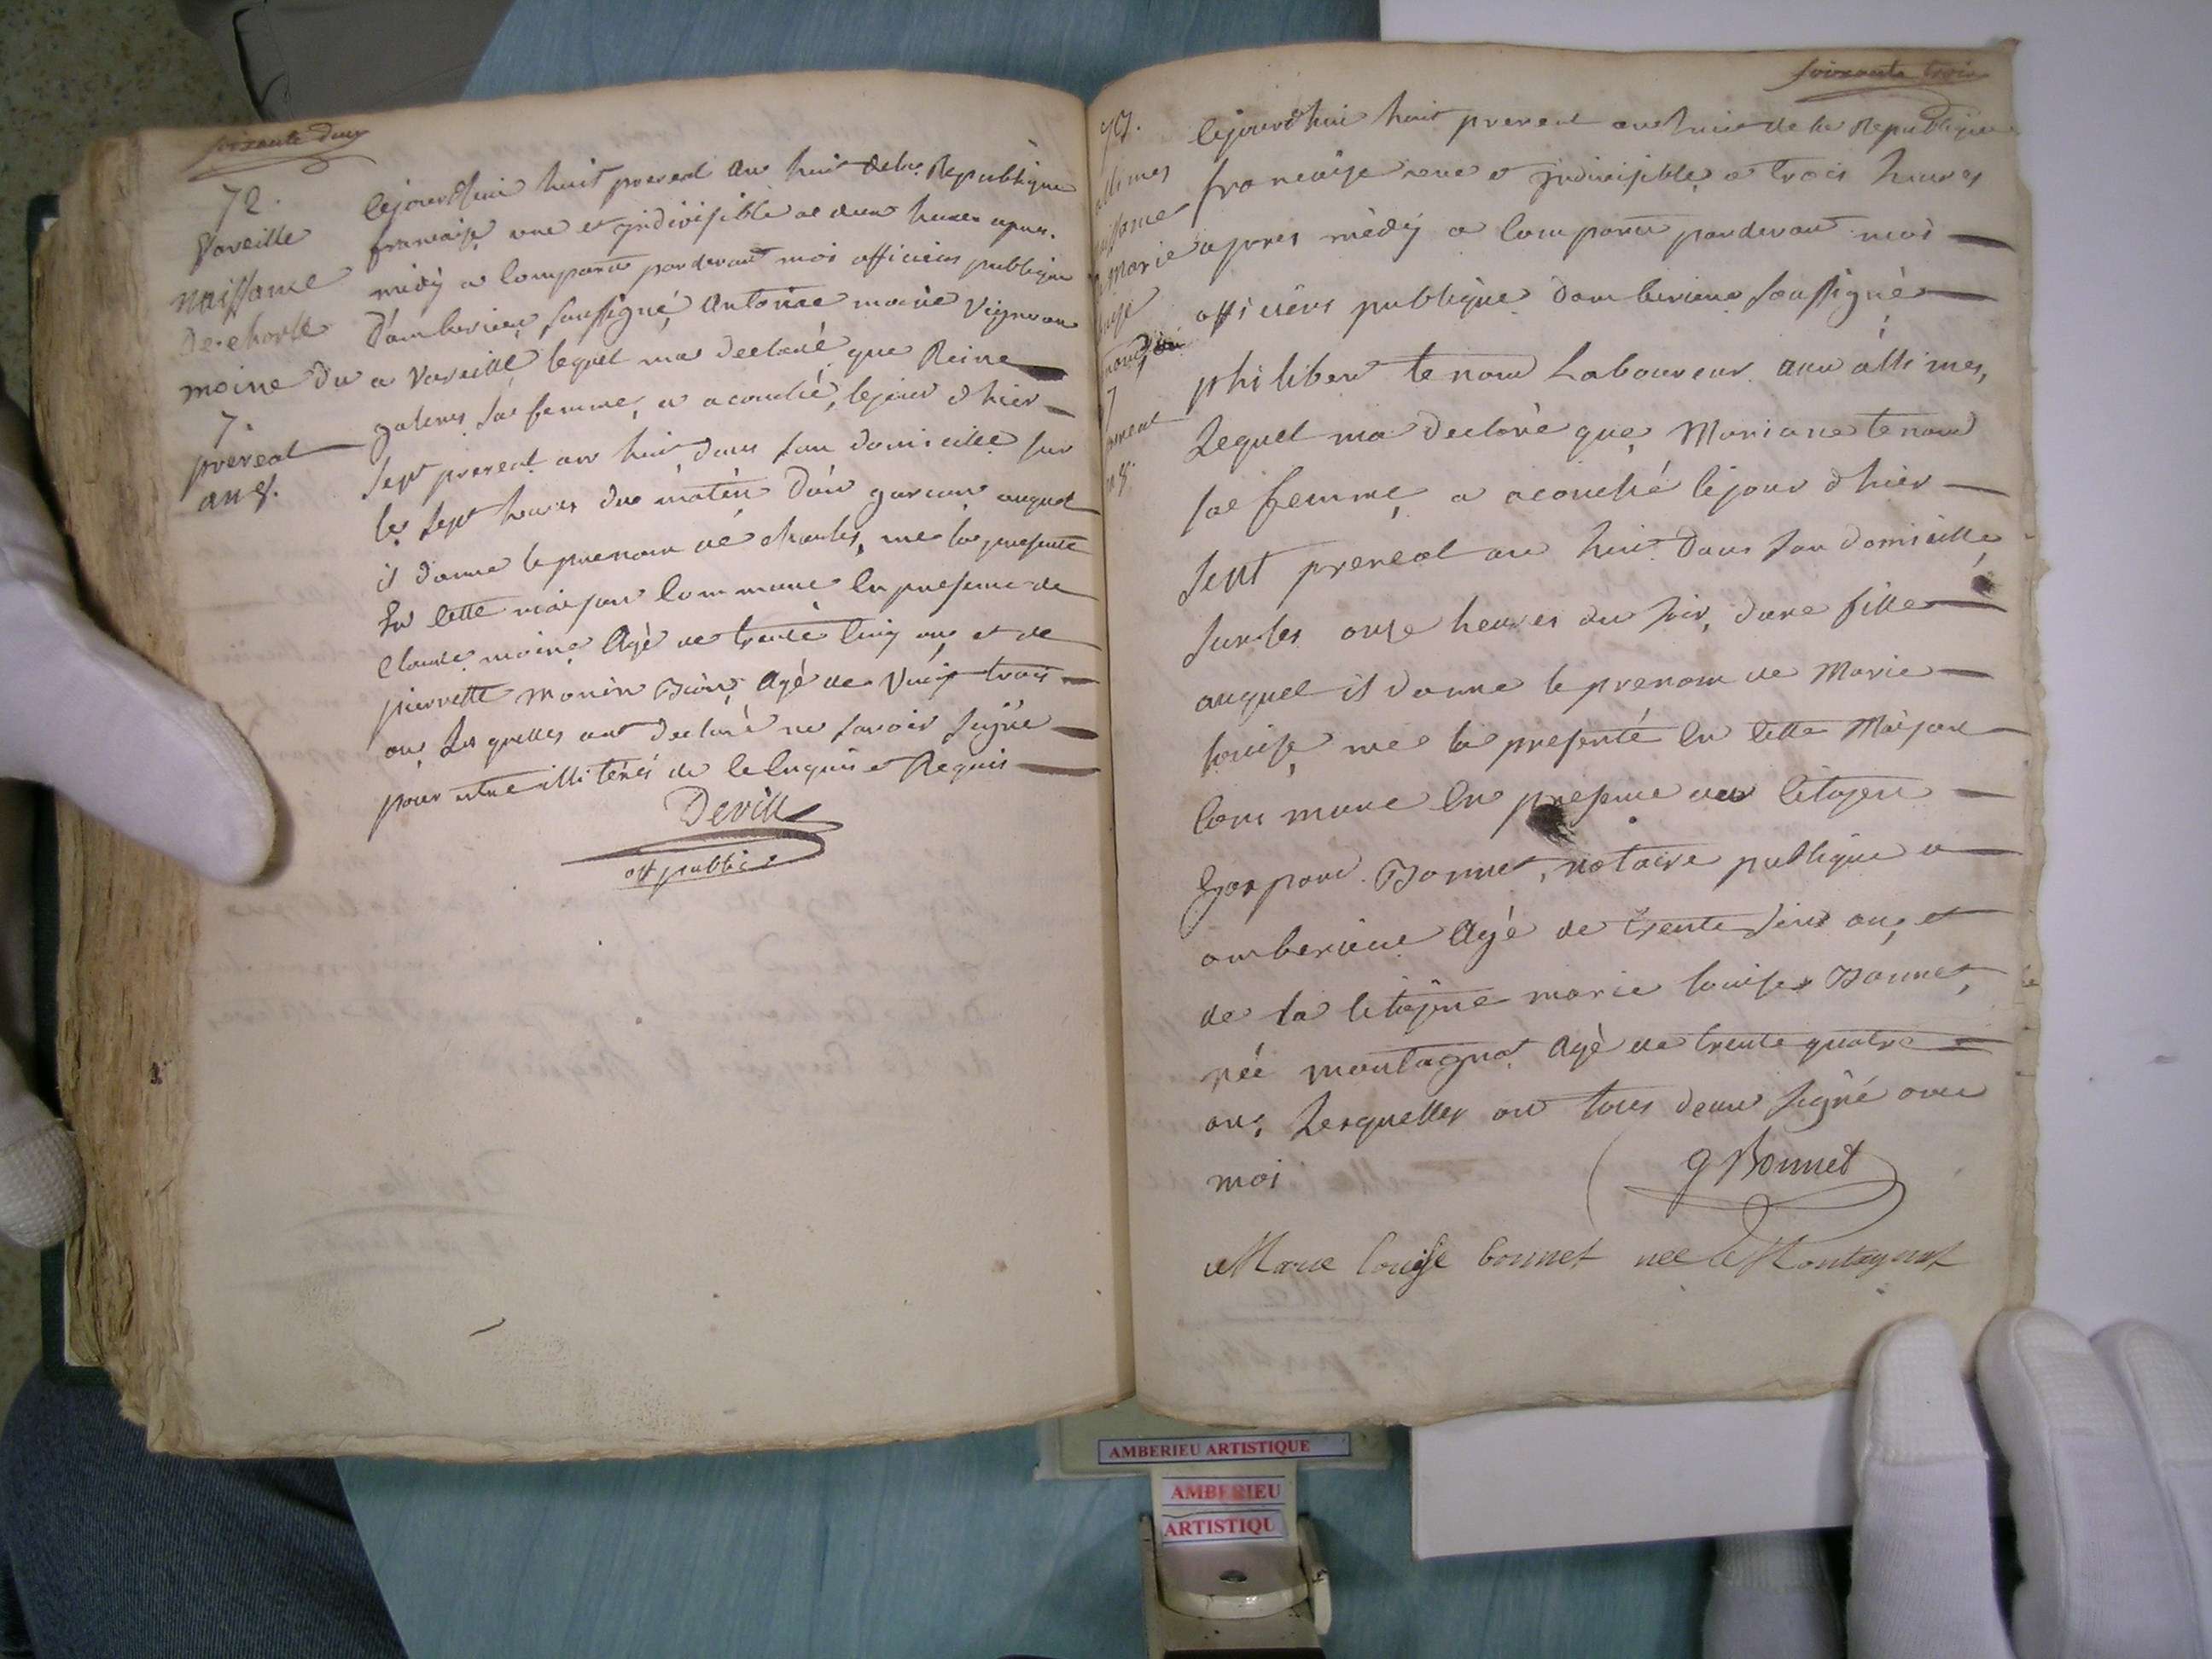 soixante deux
72.
Vareille
naissance
de charle
moine du
7.
prereal
an 8.
Cejourdhui huit prereal an huit de la Republique
francaise une et jndivisible a deux heures apres
midÿ a Comparu pardevant moi officiers publique
d'amberieu soussigné antoine moine Vigneron
a Vareille lequel ma declaré que Reine
sa femme, a acouché, lejour d hier
sept prereal an huit dans son domicille sur
les sept heures du matin d'un garcon auquel
il donne le prenom de charles, me la presente
En Cette maison Commune En presence de
Claude moine Agé de trente Cinq ans et de
pierrette monin Agé de Vingt trois
ans Lesquelles ont declaré ne savoir signé
pour être illiterés de Ce Enquis et Requis
Devill
off public
soixante trois
73.
allimes
naissance
Marie
7
prereal
an 8.
Cejourdhui huit prereal an huit de la Republique
francaise une et jndivisible a trois heures
apres midÿ a Comparu pardevant moi
officiers publique damberieux soussigné
philibert tenand Laboureur aux allimes,
Lequel ma declaré que Mariane tenand
sa femme, a acouché lejour d hier
sept prereal an huit dans son domicille
sur les onze heures du soir, dune fille
auquel il donne le prenom de Marie
louise, me la presenté En Cette Maison
Commune En presence du Citoyen
Gaspard Bonnet, notaire publique a
amberieux Agé de trente six ans, et
de la Citoÿene marie louise Bonnet,
née montagnat Agé de trente quatre
ans, Lesquelles on tous deux signé avec
moi
g Bonnet
Marie louise bonnet nee Montagnat
AMBERIEU ARTISTIQUE
AMBERIEU
ARTISTIQU